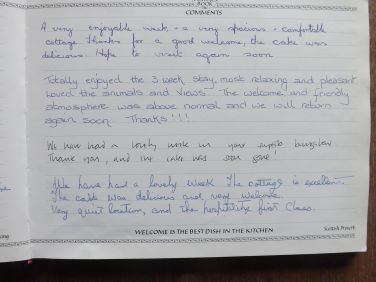 BOOK
COMMENTS
A very enjoyable week, a very spacious + comfortable
cottage. Thanks for a good welcome, the cake was
delicious. Hope to visit again soon
Totally enjoyed the 3 week stay, most relaxing and pleasant
Loved the animals and views. The welcome and friendly
atmosphere was above normal and we will return
again soon. Thanks!!!
We have had a lovely week in your superb bungalow
Thank you, and the cake was soon gone!
We have had a lovely week. The cottage is excellent.
The cake was delicious and very welcome.
Very quiet location, and the first Class.
WELCOME IS THE BEST DISH IN THE KITCHEN
Scottish Proverb